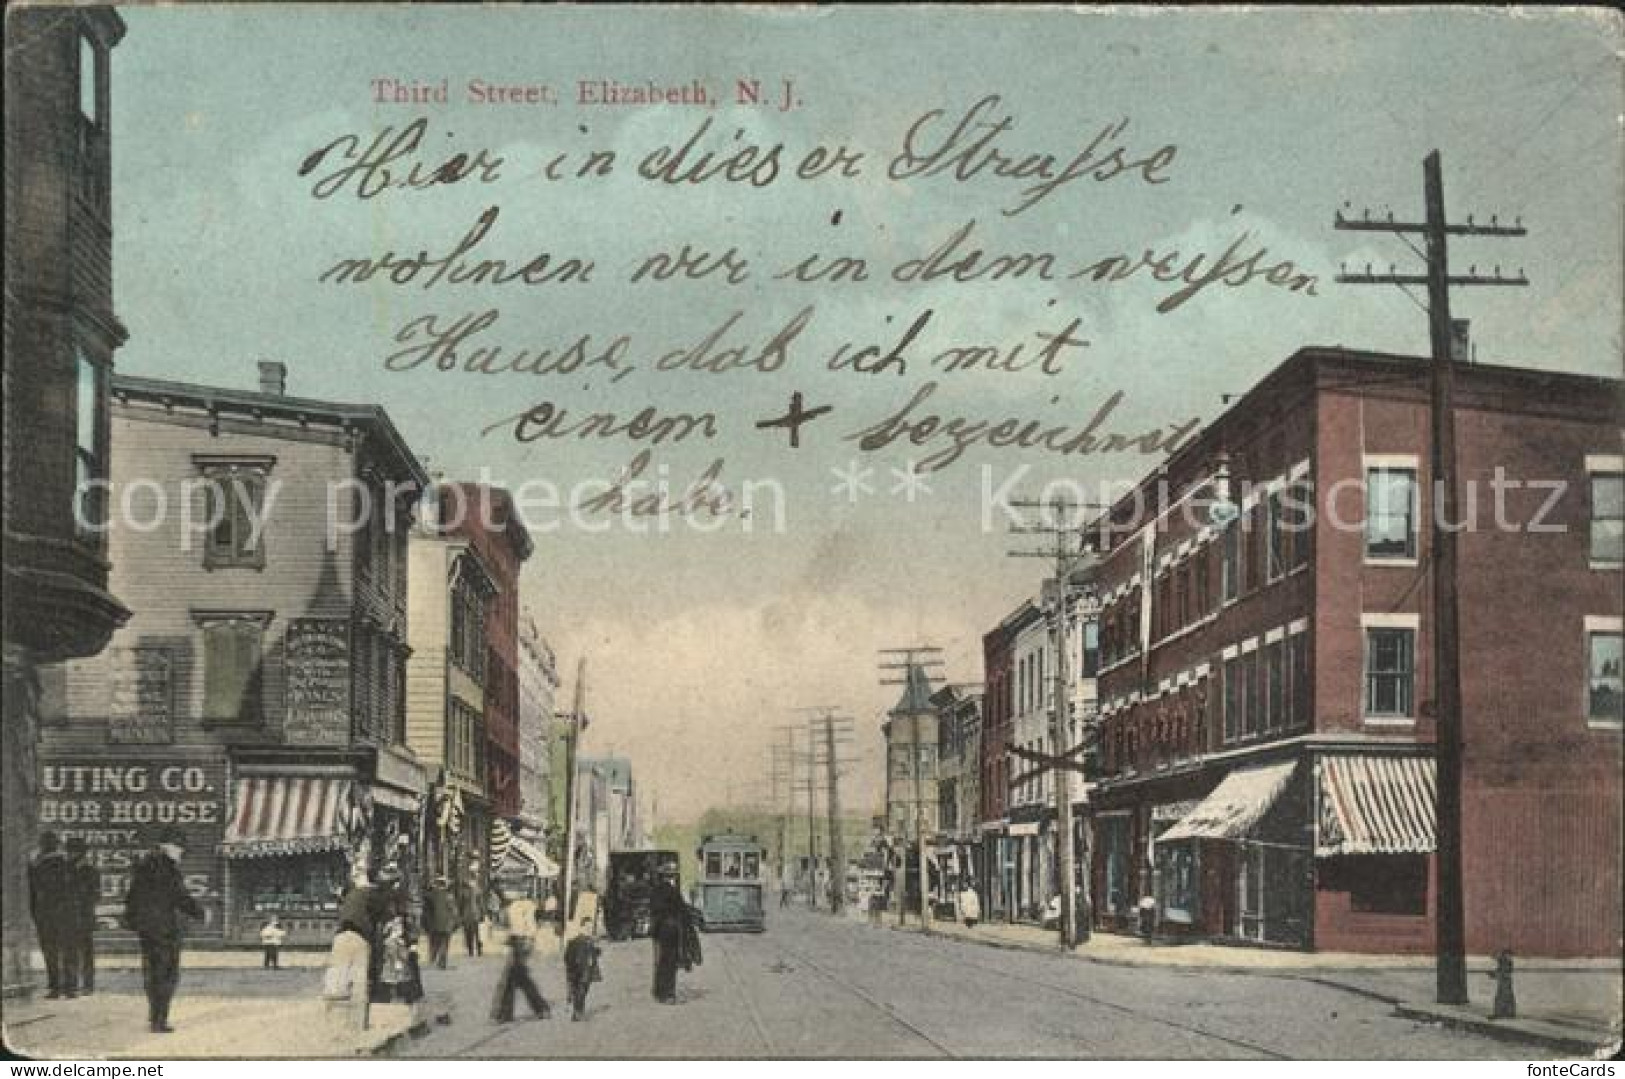 Third Street, Elizabeth, N. J.
Hier in dieser Straſse
wohnen wir in dem weiſsen
Hause, daß ich mit
einem + bezeichnet
habe.
copy protection ** Kopierschutz
UTING CO.
OR HOUSE
delcampe.net
fonteCards